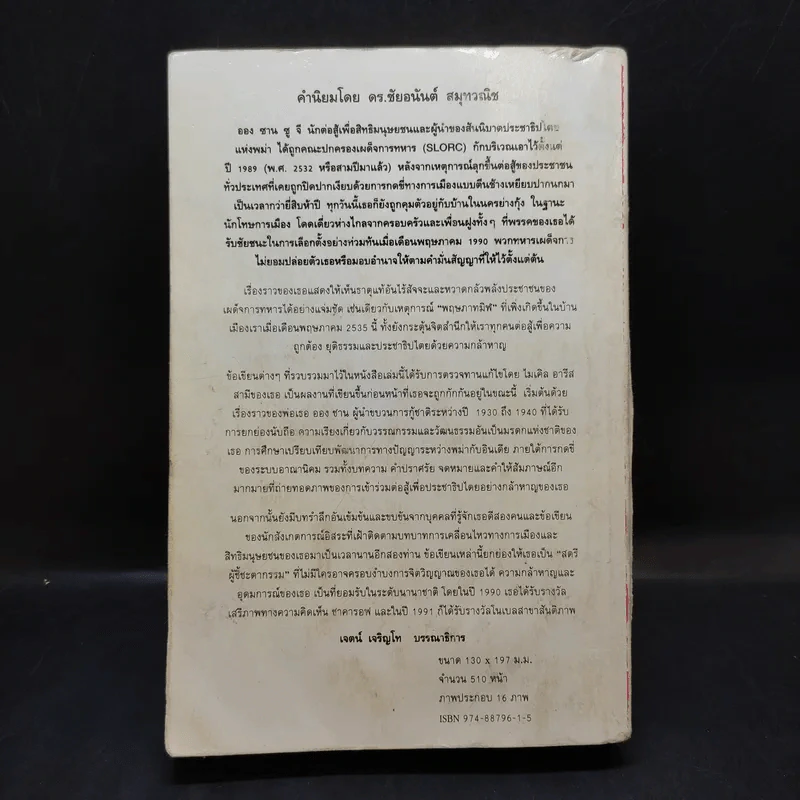 คำนิยมโดย ดร.ชัยอนันต์ สมุทวณิช
ออง ซาน ซู จี นักต่อสู้เพื่อสิทธิมนุษยชนและผู้นำของสันนิบาตประชาธิปไตย
แห่งพม่า ได้ถูกคณะปกครองเผด็จการทหาร (SLORC) กักบริเวณเอาไว้ตั้งแต่
ปี 1989 (พ.ศ. 2532 หรือสามปีมาแล้ว) หลังจากเหตุการณ์ลุกขึ้นต่อสู้ของประชาชน
ทั่วประเทศที่เคยถูกปิดปากเงียบด้วยการกดขี่ทางการเมืองแบบตีนช้างเหยียบปากนกมา
เป็นเวลากว่ายี่สิบห้าปี ทุกวันนี้เธอก็ยังถูกคุมตัวอยู่กับบ้านในนครย่างกุ้ง ในฐานะ
นักโทษการเมือง โดดเดี่ยวห่างไกลจากครอบครัวและเพื่อนฝูงทั้งๆ ที่พรรคของเธอได้
รับชัยชนะในการเลือกตั้งอย่างท่วมท้นเมื่อเดือนพฤษภาคม 1990 พวกทหารเผด็จการ
ไม่ยอมปล่อยตัวเธอหรือมอบอำนาจให้ตามคำมั่นสัญญาที่ให้ไว้ตั้งแต่ต้น
เรื่องราวของเธอแสดงให้เห็นธาตุแท้อันไร้สัจจะและหวาดกลัวพลังประชาชนของ
เผด็จการทหารได้อย่างแจ่มชัด เช่นเดียวกับเหตุการณ์ "พฤษภาทมิฬ" ที่เพิ่งเกิดขึ้นในบ้าน
เมืองเราเมื่อเดือนพฤษภาคม 2535 นี้ ทั้งยังกระตุ้นจิตสำนึกให้เราทุกคนต่อสู้เพื่อความ
ถูกต้อง ยุติธรรมและประชาธิปไตยด้วยความกล้าหาญ
ข้อเขียนต่างๆ ที่รวบรวมมาไว้ในหนังสือเล่มนี้ได้รับการตรวจทานแก้ไขโดย ไมเคิล อาริส
สามีของเธอ เป็นผลงานที่เขียนขึ้นก่อนหน้าที่เธอจะถูกกักกันอยู่ในขณะนี้ เริ่มต้นด้วย
เรื่องราวของพ่อเธอ ออง ซาน ผู้นำขบวนการกู้ชาติระหว่างปี 1930 ถึง 1940 ที่ได้รับ
การยกย่องนับถือ ความเรียงเกี่ยวกับวรรณกรรมและวัฒนธรรมอันเป็นมรดกแห่งชาติของ
เธอ การศึกษาเปรียบเทียบพัฒนาการทางปัญญาระหว่างพม่ากับอินเดีย ภายใต้การกดขี่
ของระบบอาณานิคม รวมทั้งบทความ คำปราศรัย จดหมายและคำให้สัมภาษณ์อีก
มากมายที่ถ่ายทอดภาพของการเข้าร่วมต่อสู้เพื่อประชาธิปไตยอย่างกล้าหาญของเธอ
นอกจากนั้นยังมีบทรำลึกอันเข้มข้นและขบขันจากบุคคลที่รู้จักเธอดีสองคนและข้อเขียน
ของนักสังเกตการณ์อิสระที่เฝ้าติดตามบทบาทการเคลื่อนไหวทางการเมืองและ
สิทธิมนุษยชนของเธอมาเป็นเวลานานอีกสองท่าน ข้อเขียนเหล่านี้ยกย่องให้เธอเป็น "สตรี
ผู้ชี้ชะตากรรม" ที่ไม่มีใครอาจครอบงำบงการจิตวิญญาณของเธอได้ ความกล้าหาญและ
อุดมการณ์ของเธอ เป็นที่ยอมรับในระดับนานาชาติ โดยในปี 1990 เธอได้รับรางวัล
เสรีภาพทางความคิดเห็น ซาคารอฟ และในปี 1991 ก็ได้รับรางวัลโนเบลสาขาสันติภาพ
เจตน์ เจริญโท บรรณาธิการ
ขนาด 130 x 197 ม.ม.
จำนวน 510 หน้า
ภาพประกอบ 16 ภาพ
ISBN 974-88796-1-5